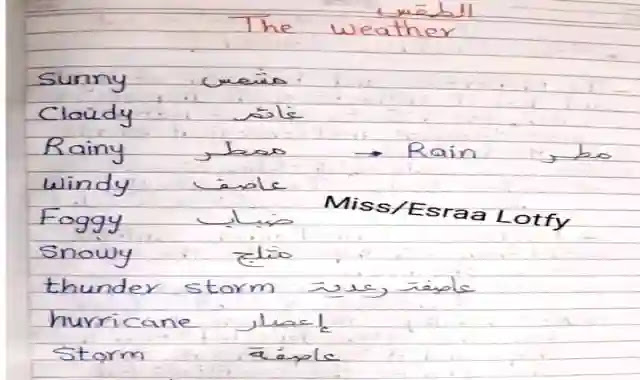 الطقس
The weather
Sunny مشمس
Cloudy غائم
Rainy ممطر → Rain مطر
windy عاصف
Foggy ضباب
Miss/Esraa Lotfy
Snowy مثلج
thunder storm عاصفة رعدية
hurricane إعصار
Storm عاصفة